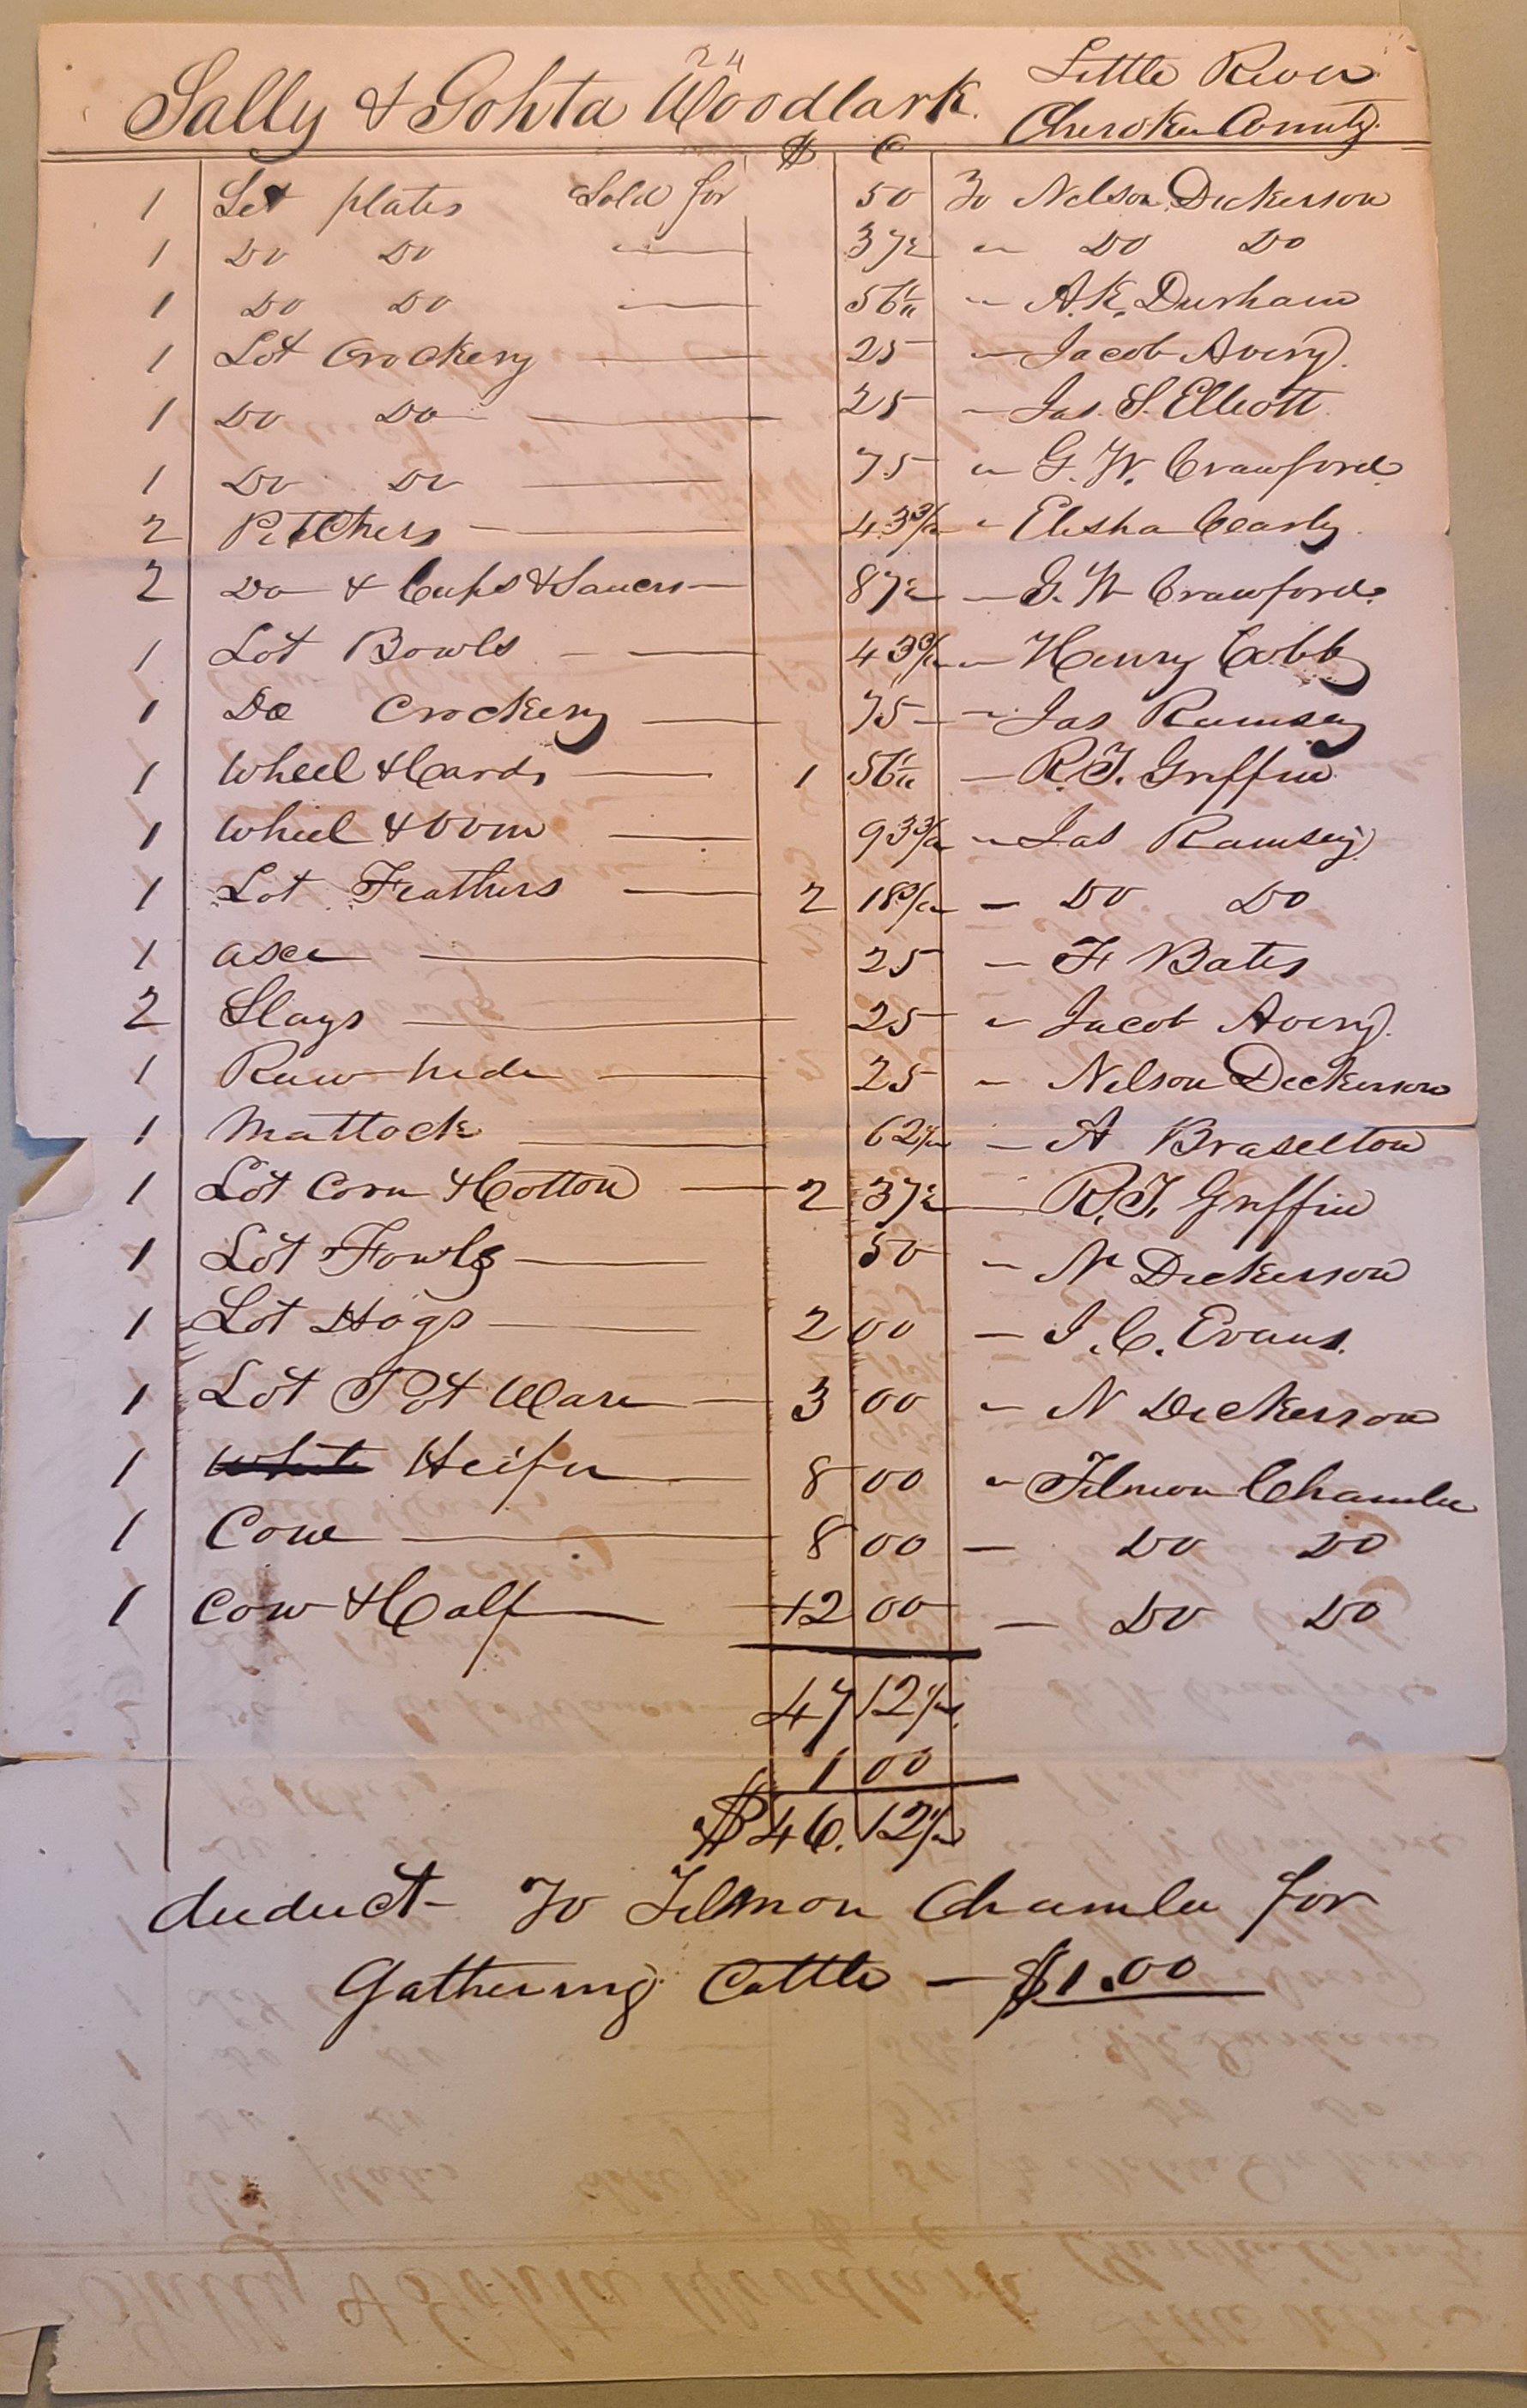 24
Sally & Gohta Woodlark. Little River
Cherokee County.
$ C
1 Set plates Sold for 50 To Nelson Dickerson
1 Do Do — 37½ " Do Do
1 Do Do — 56¼ " A.K. Durham
1 Lot Crockery — 25 " Jacob Avery.
1 Do Do — 25 " Jas. S. Elliott.
1 Do Do — 75 " G. W. Crawford
2 Pitchers — 43¾ " Elisha Early.
2 Do & Cups & Saucers — 87½ — G. W Crawford.
1 Lot Bowls — 43¾ — Henry Cobb
1 Do Crockery — 75 — Jas Ramsey
1 Wheel & Cards — 1 56¼ — R.T. Griffin
1 Wheel & Loom — 93¾ " Jas Ramsey.
1 Lot Feathers — 2 18¾ — Do Do
1 axe — 25 — H Bates
2 Slays — 25 " Jacob Avery.
1 Raw hide — 25 " Nelson Dickerson
1 Mattock — 62½ — A Braselton
1 Lot Corn & Cotton — 2 37½ — R.T. Griffin
1 Lot Fowls — 50 — N Dickerson
1 Lot Hogs — 2 00 — J. C. Evans.
1 Lot Pot Ware — 3 00 " N Dickerson
1 White Heifer — 8 00 " Tilmon Chamlee
1 Cow — 8 00 — Do Do
1 Cow & Calf — 12 00 — Do Do
47 12½
1 00
$46. 12½
deduct – To Tilmon Chamlee for
Gathering Cattle — $1.00